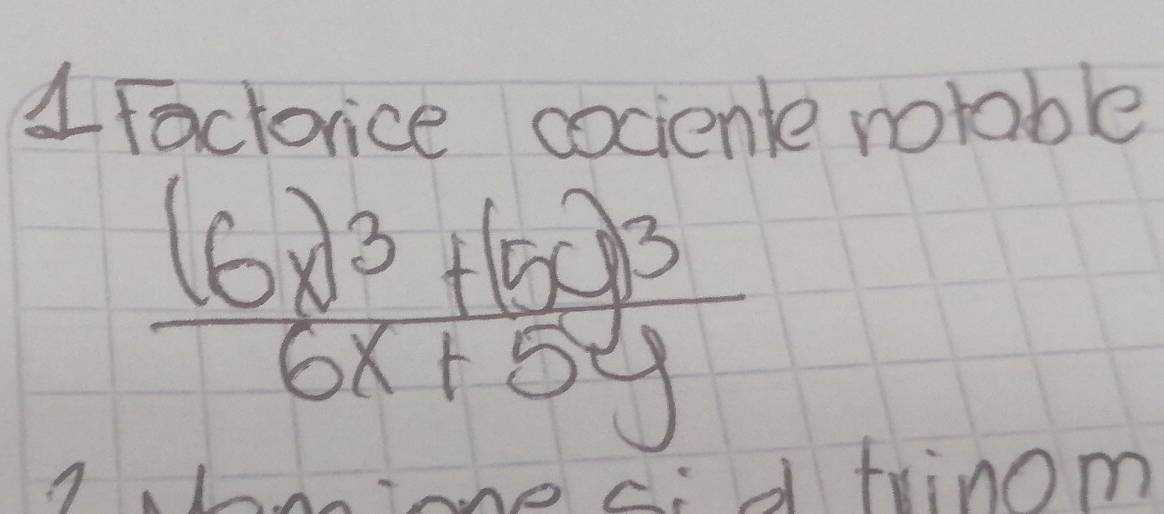 1 Factorice cociente notable
(6x)³ + (5y)³
6x + 5y
si d trinom